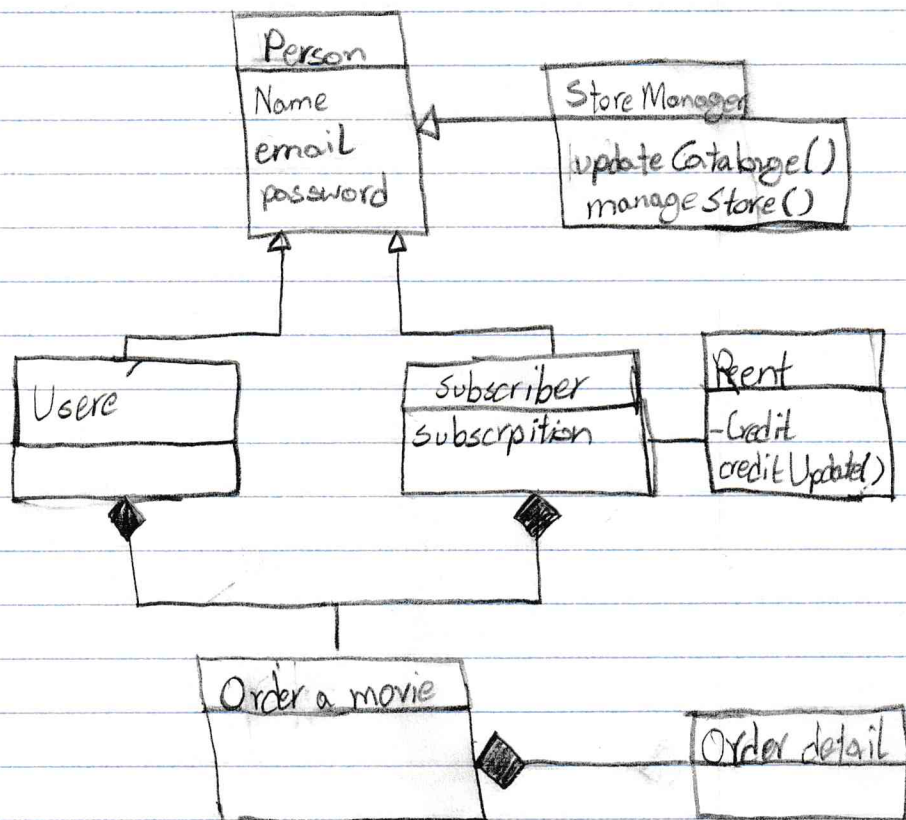 Person
Name
email
password
Store Manager
updateCatalorge()
manageStore()
Usere
subscriber
subscrpition
Reent
-Credit
creditUpdate()
Order a movie
Order detail